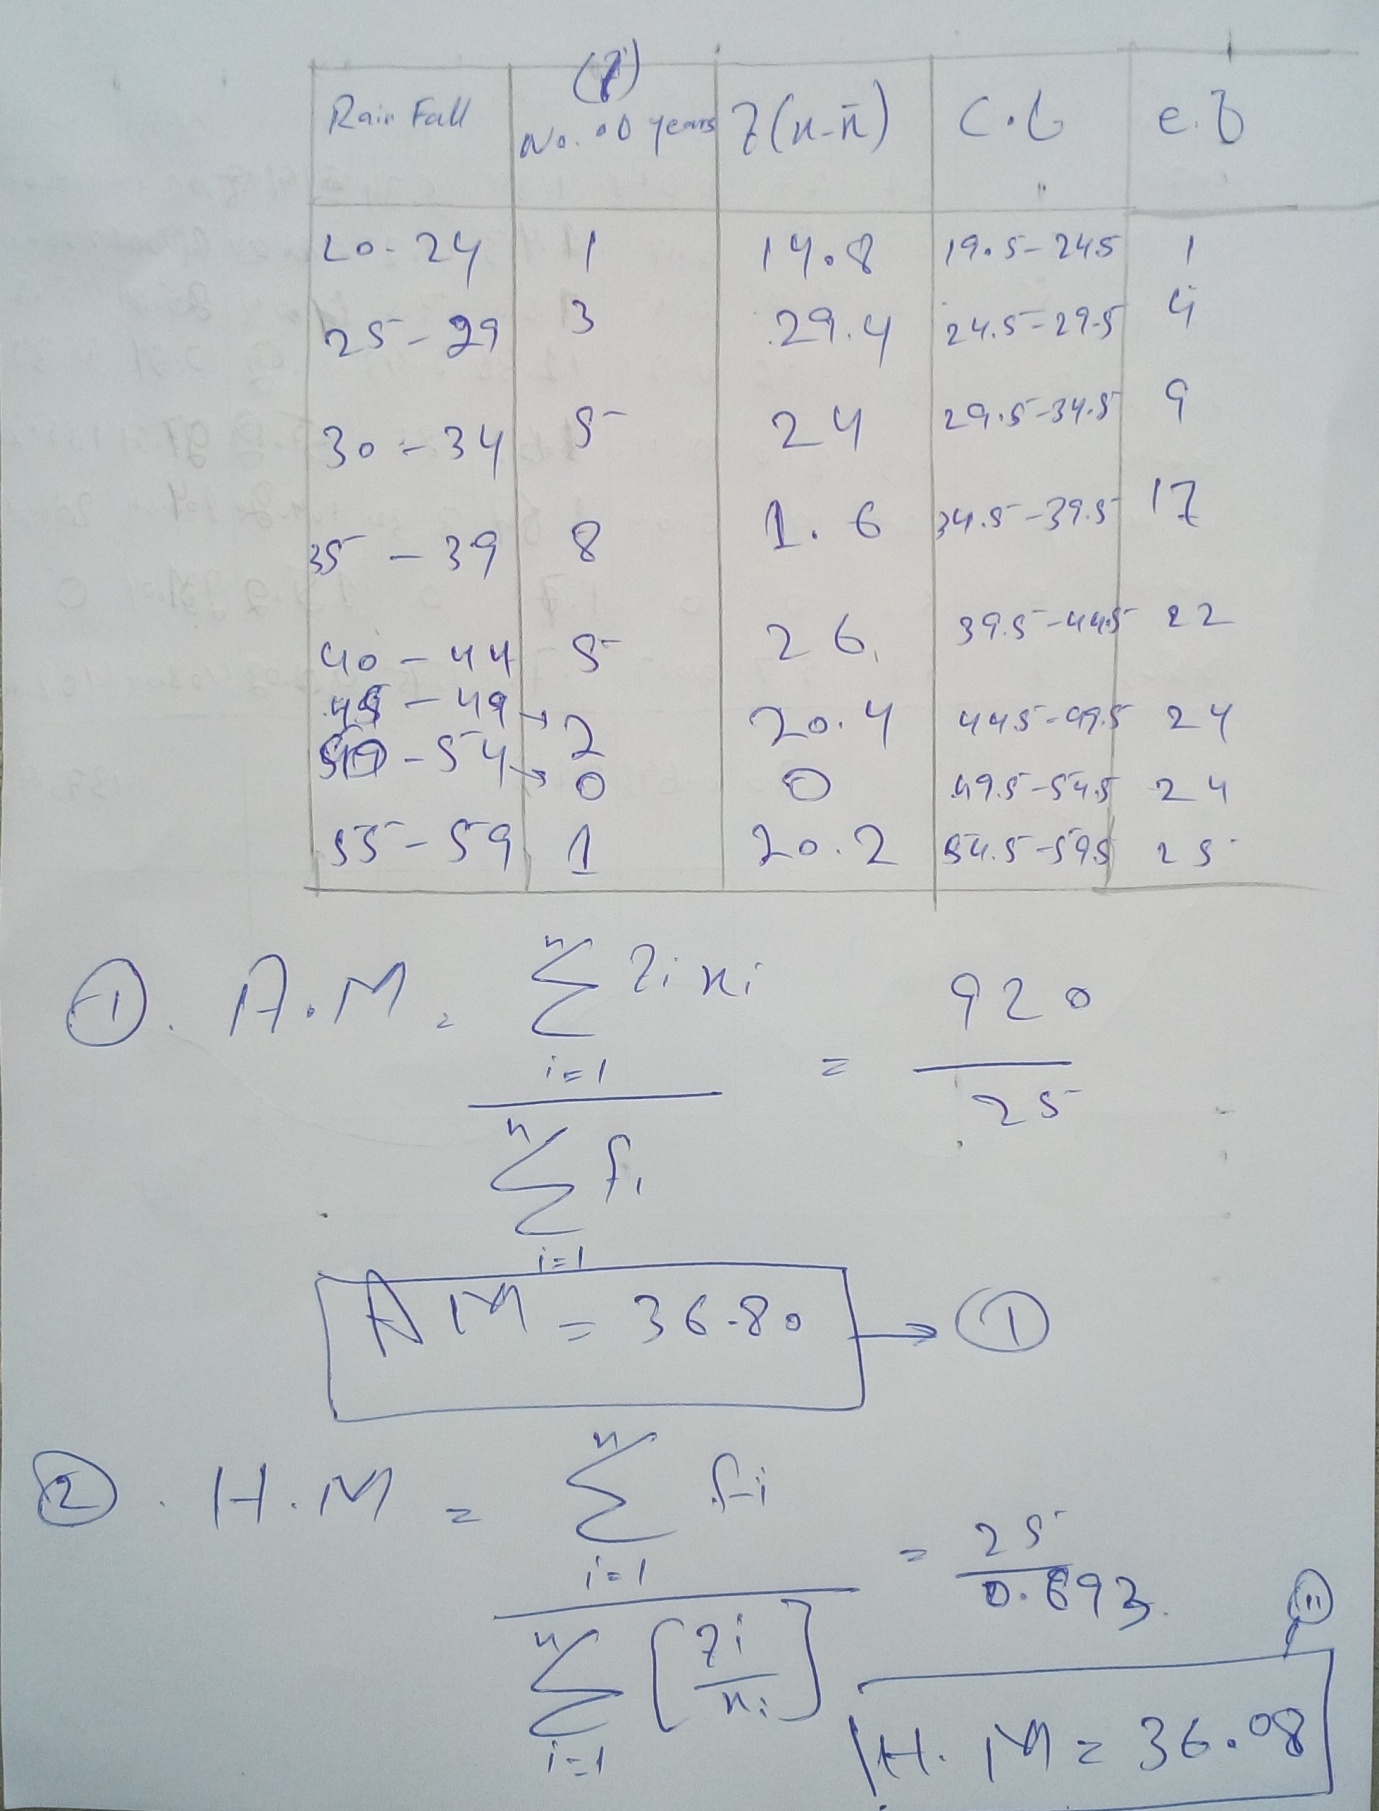 (f)
Rain Fall No. of years f(x-x̄) C.b c.f
20-24 1 14.8 19.5-24.5 1
25-29 3 29.4 24.5-29.5 4
30-34 5 24 29.5-34.5 9
35-39 8 1.6 34.5-39.5 17
40-44 5 26 39.5-44.5 22
45-49 → 2 20.4 44.5-49.5 24
50-54 → 0 0 49.5-54.5 24
55-59 1 20.2 54.5-59.5 25
① . A.M = n∑i=1 fixi / n∑i=1 fi = 920/25
AM = 36.80 → ①
② . H.M = n∑i=1 fi / n∑i=1 [fi/xi] = 25/0.693
H.M = 36.08